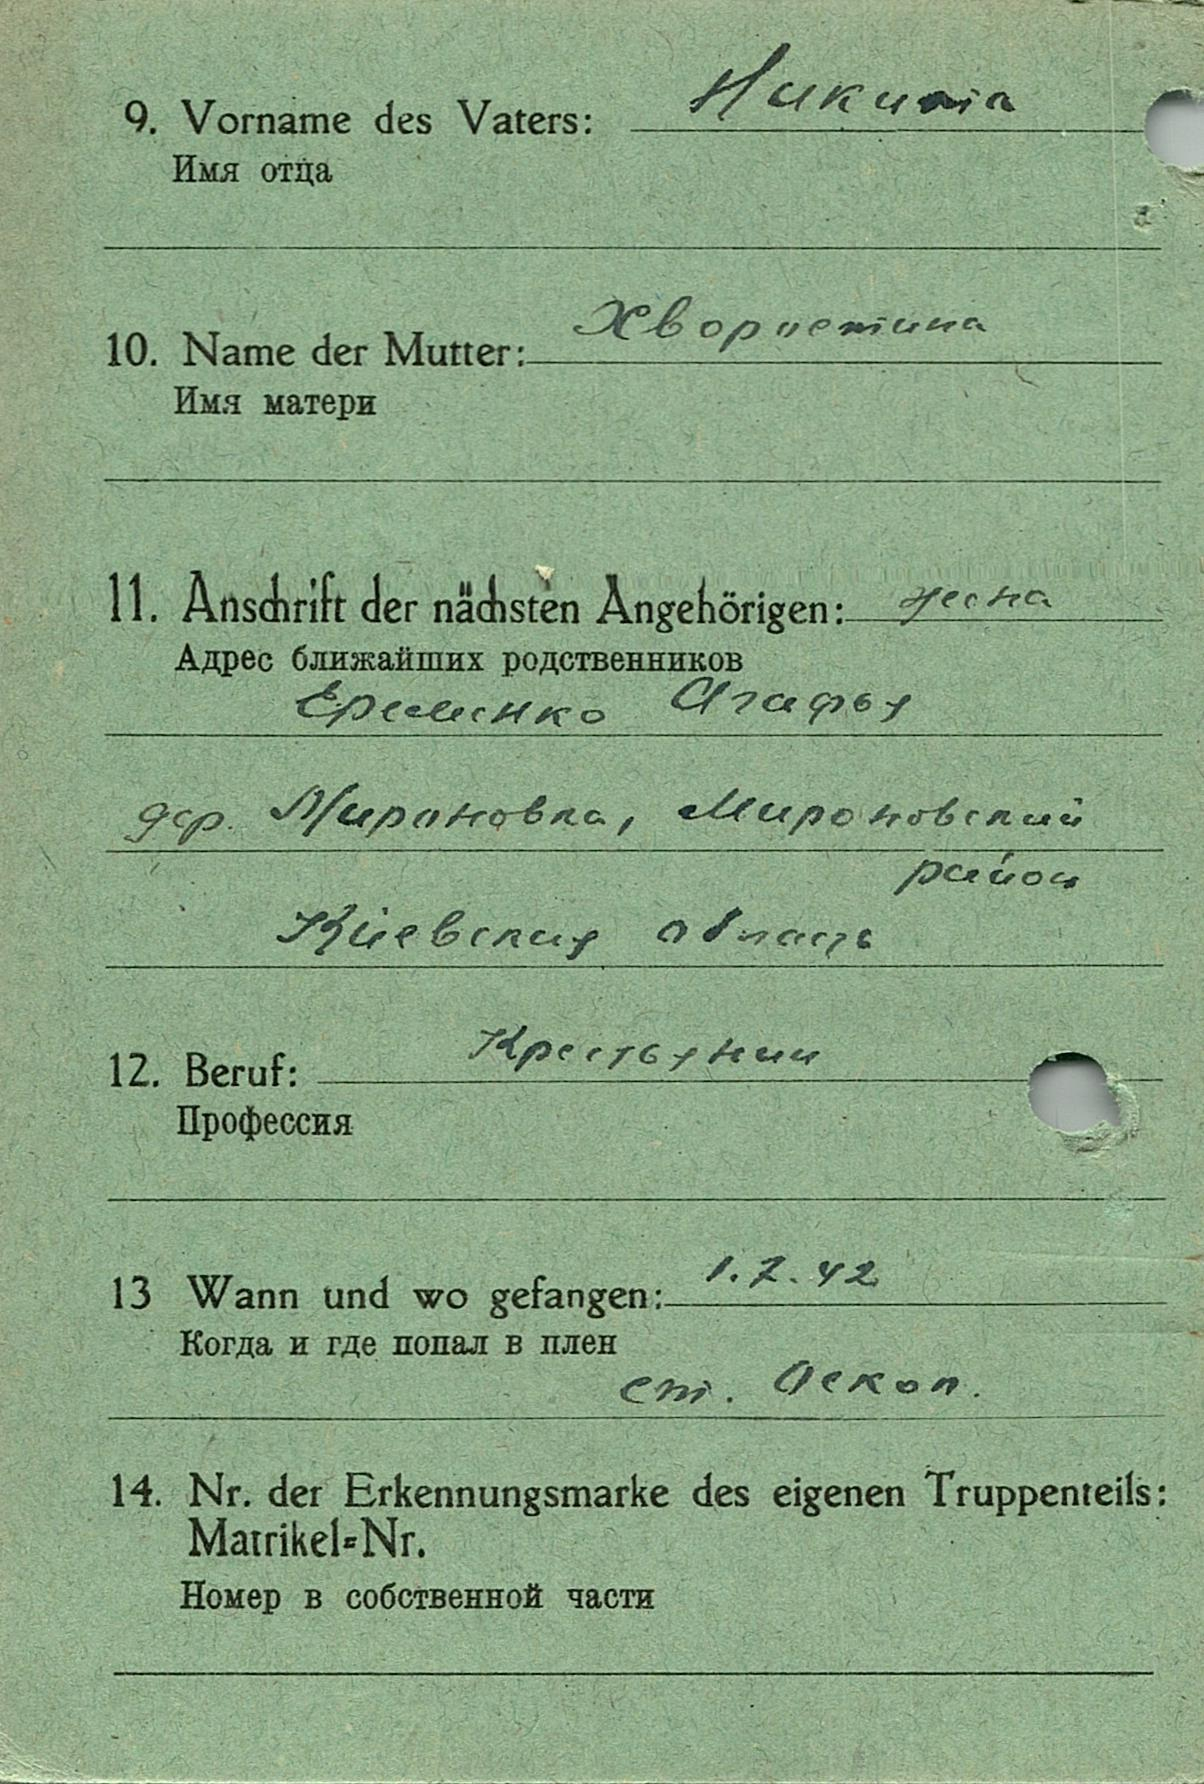 9. Vorname des Vaters: Никита
Имя отца
10. Name der Mutter: Хворостина
Имя матери
11. Anschrift der nächsten Angehörigen: жена
Адрес ближайших родственников
Еременко Агафья
дер. Мироновка, Мироновский
район
Киевская область
12. Beruf: Крестьянин
Профессия
13 Wann und wo gefangen: 1.7.42
Когда и где попал в плен
ст. Оскол.
14. Nr. der Erkennungsmarke des eigenen Truppenteils:
Matrikel=Nr.
Номер в собственной части